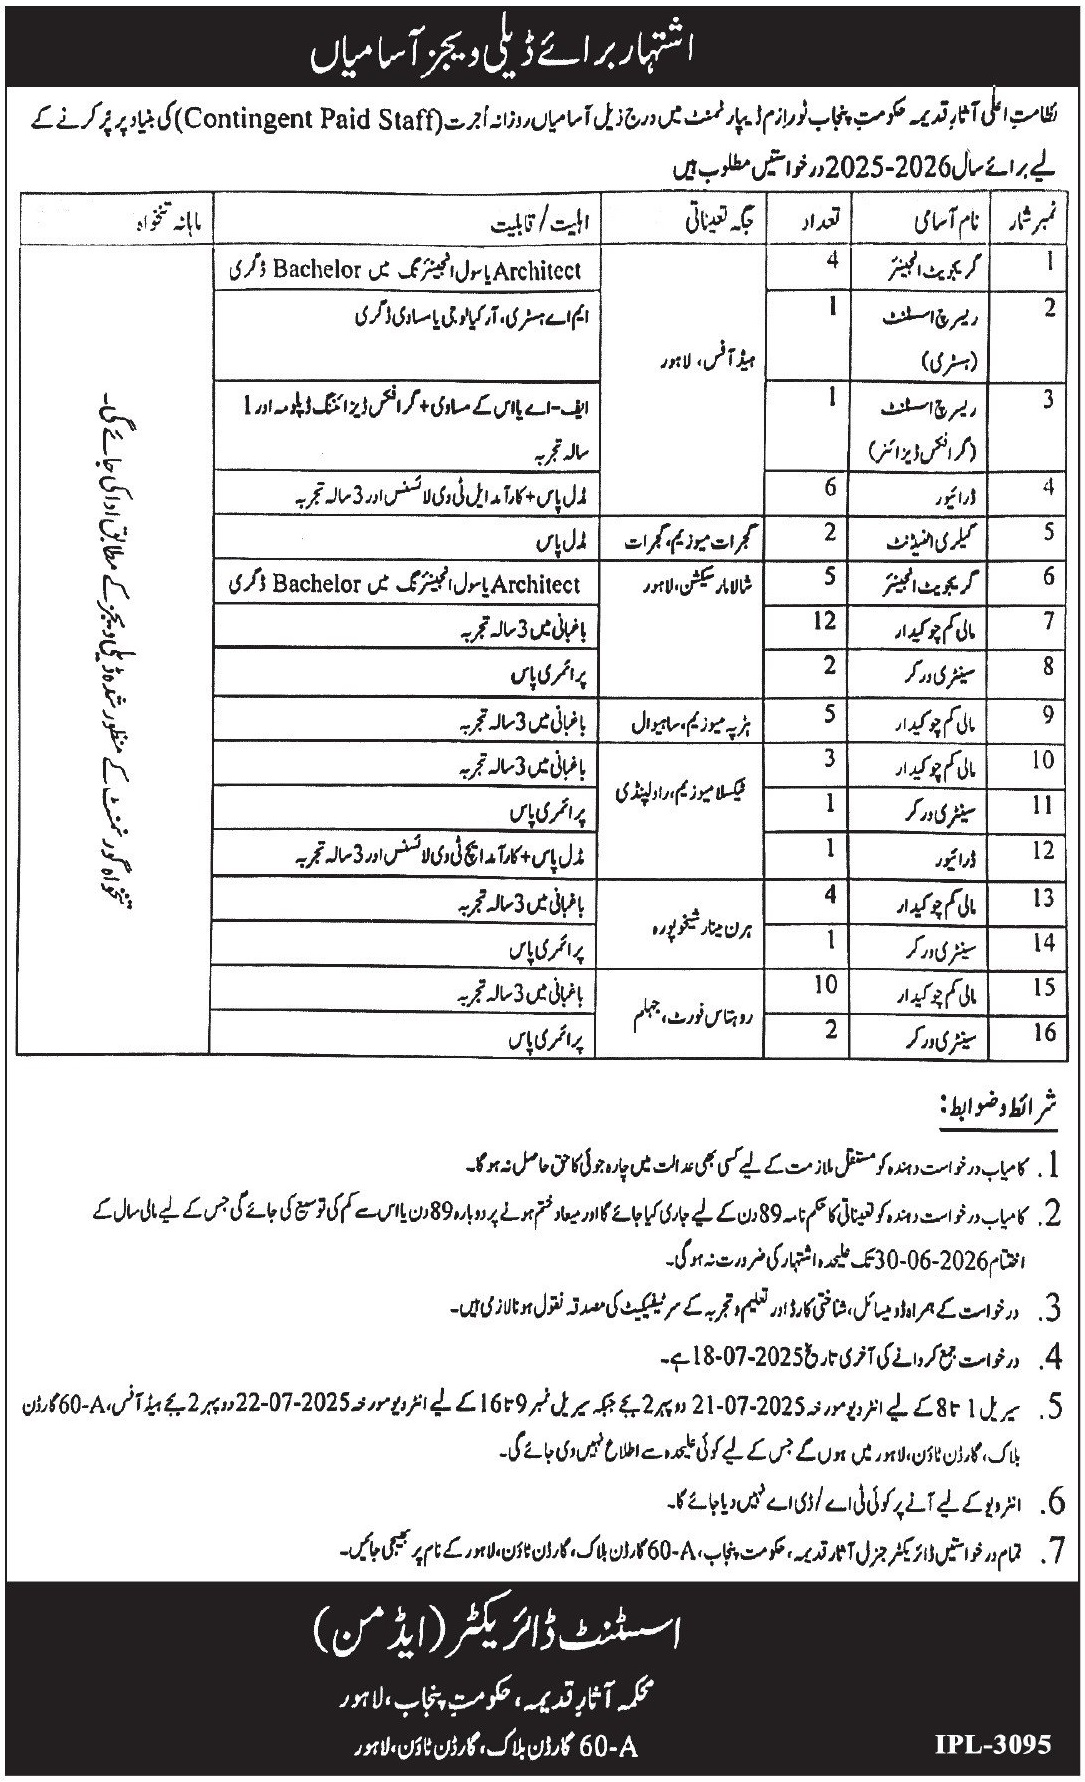 اشتہار برائے ڈیلی ویجز آسامیاں
نظامتِ اعلیٰ آثارِ قدیمہ حکومتِ پنجاب ٹورازم ڈیپارٹمنٹ میں درج ذیل آسامیاں روزانہ اُجرت (Contingent Paid Staff) کی بنیاد پر پُر کرنے کے
لیے برائے سال 2025-2026 درخواستیں مطلوب ہیں
نمبر شمار نام آسامی تعداد جگہ تعیناتی اہلیت/قابلیت ماہانہ تنخواہ
1 گریجویٹ انجینئر 4 ہیڈ آفس، لاہور Architect یا سول انجینئرنگ میں Bachelor ڈگری
2 ریسرچ اسسٹنٹ (ہسٹری) 1 ایم اے ہسٹری، آرکیالوجی یا مساوی ڈگری
3 ریسرچ اسسٹنٹ (گرافکس ڈیزائنر) 1 ایف-اے یا اس کے مساوی + گرافکس ڈیزائننگ ڈپلومہ اور 1 سالہ تجربہ
4 ڈرائیور 6 مڈل پاس + کارآمد ایل ٹی وی لائسنس اور 3 سالہ تجربہ
5 گیلری اٹینڈنٹ 2 گجرات میوزیم، گجرات مڈل پاس
6 گریجویٹ انجینئر 5 شالامار سیکشن، لاہور Architect یا سول انجینئرنگ میں Bachelor ڈگری
7 مالی کم چوکیدار 12 باغبانی میں 3 سالہ تجربہ
8 سینٹری ورکر 2 پرائمری پاس
9 مالی کم چوکیدار 5 ہڑپہ میوزیم، ساہیوال باغبانی میں 3 سالہ تجربہ
10 مالی کم چوکیدار 3 ٹیکسلا میوزیم، راولپنڈی باغبانی میں 3 سالہ تجربہ
11 سینٹری ورکر 1 پرائمری پاس
12 ڈرائیور 1 مڈل پاس + کارآمد ایچ ٹی وی لائسنس اور 3 سالہ تجربہ
13 مالی کم چوکیدار 4 ہرن مینار شیخوپورہ باغبانی میں 3 سالہ تجربہ
14 سینٹری ورکر 1 پرائمری پاس
15 مالی کم چوکیدار 10 روہتاس فورٹ، جہلم باغبانی میں 3 سالہ تجربہ
16 سینٹری ورکر 2 پرائمری پاس
تنخواہ گورنمنٹ کے منظور شدہ ڈیلی ویجز کے مطابق ادا کی جائے گی۔
شرائط و ضوابط:
1. کامیاب درخواست دہندہ کو مستقل ملازمت کے لیے کسی بھی عدالت میں چارہ جوئی کا حق حاصل نہ ہو گا۔
2. کامیاب درخواست دہندہ کو تعیناتی کا حکم نامہ 89 دن کے لیے جاری کیا جائے گا اور میعاد ختم ہونے پر دوبارہ 89 دن یا اس سے کم کی توسیع کی جائے گی جس کے لیے مالی سال کے
اختتام 30-06-2026 تک علیحدہ اشتہار کی ضرورت نہ ہو گی۔
3. درخواست کے ہمراہ ڈومیسائل، شناختی کارڈ اور تعلیم و تجربہ کے سرٹیفکیٹ کی مصدقہ نقول ہونا لازمی ہیں۔
4. درخواست جمع کروانے کی آخری تاریخ 18-07-2025 ہے۔
5. سیریل 1 تا 8 کے لیے انٹرویو مورخہ 21-07-2025 دوپہر 2 بجے جبکہ سیریل نمبر 9 تا 16 کے لیے انٹرویو مورخہ 22-07-2025 دوپہر 2 بجے ہیڈ آفس، 60-A گارڈن
بلاک، گارڈن ٹاؤن، لاہور میں ہوں گے جس کے لیے کوئی علیحدہ سے اطلاع نہیں دی جائے گی۔
6. انٹرویو کے لیے آنے پر کوئی ٹی اے/ڈی اے نہیں دیا جائے گا۔
7. تمام درخواستیں ڈائریکٹر جنرل آثار قدیمہ، حکومت پنجاب، 60-A گارڈن بلاک، گارڈن ٹاؤن، لاہور کے نام پر بھیجی جائیں۔
اسسٹنٹ ڈائریکٹر (ایڈمن)
محکمہ آثارِ قدیمہ، حکومتِ پنجاب، لاہور
60-A گارڈن بلاک، گارڈن ٹاؤن، لاہور
IPL-3095